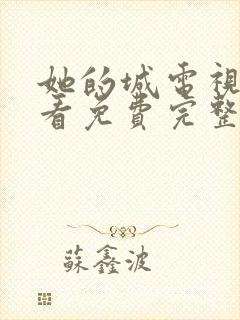 她的城电視
看免費完整
蘇鑫波